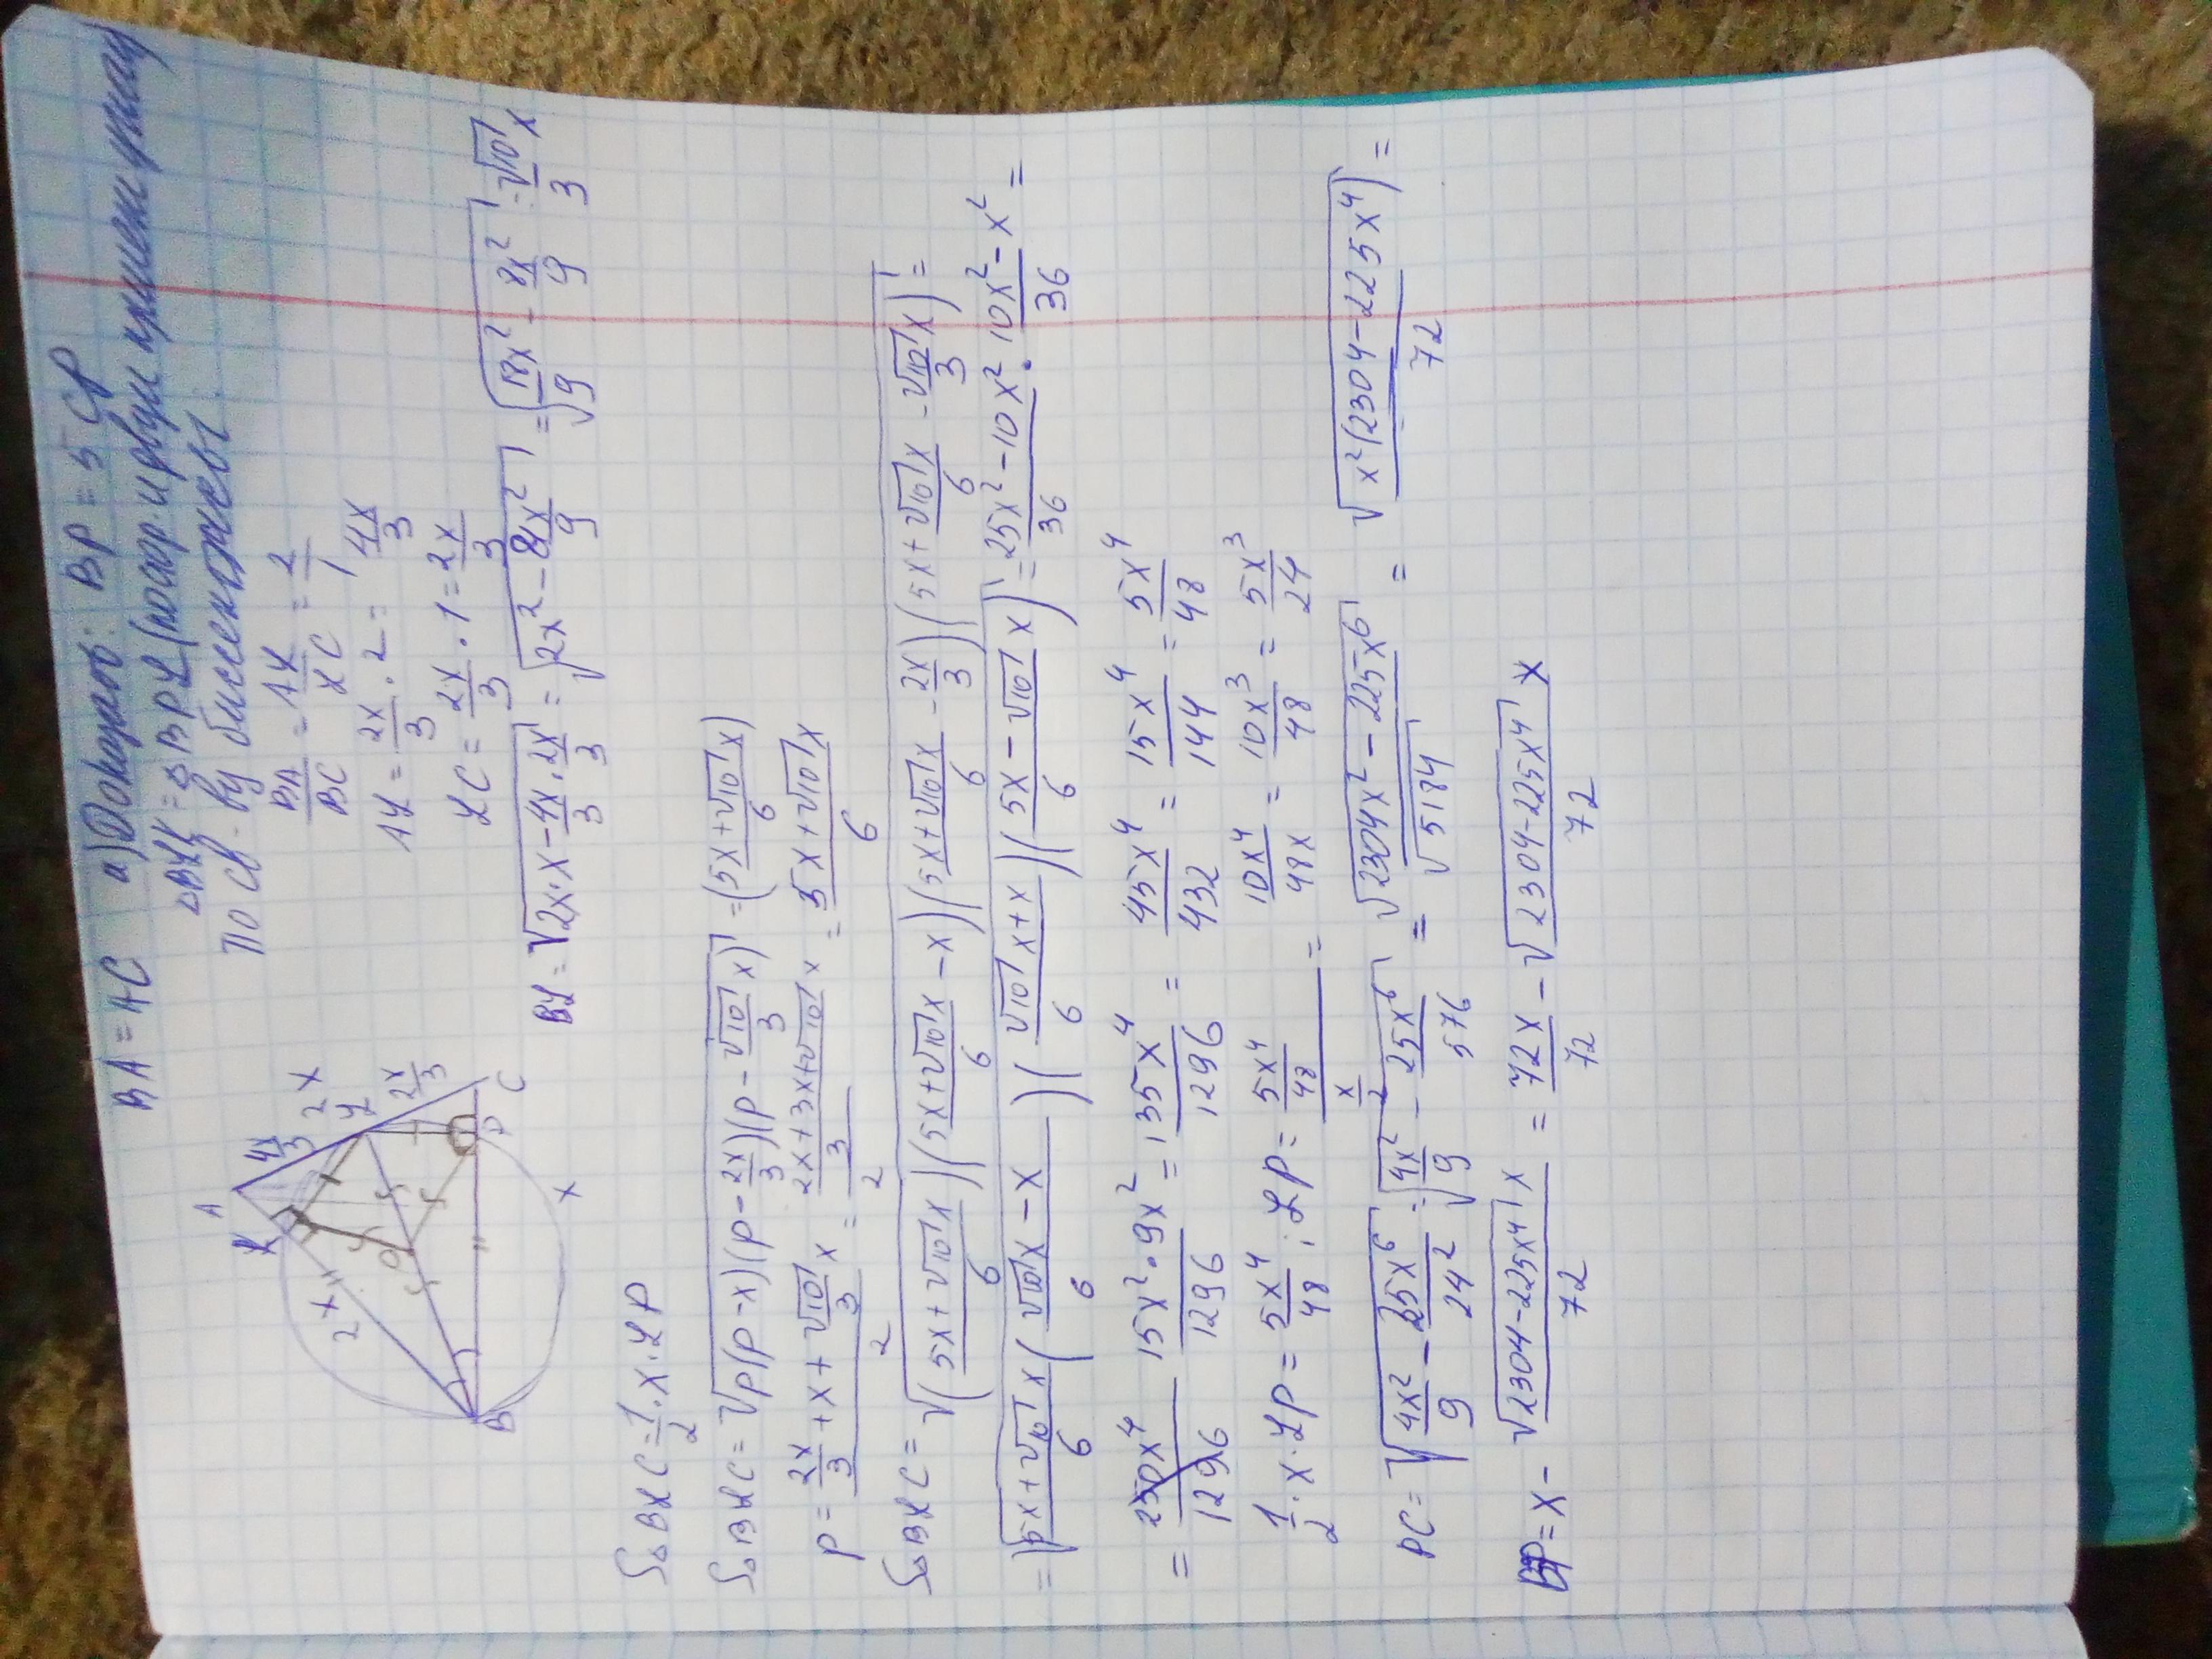 BA = AC а) Доказать: BP = 5 CP
△BLK = △BPL (по гор. и двум прилеж. углам)
По св-ву биссектрисы
BA/BC = AL/LC = 2/1
AL = 2x/3 · 2 = 4x/3
LC = 2x/3 · 1 = 2x/3
A
K
4x/3
2x
L
2x/3
C
2x
O
P
B
x
BL = √(2x·x − 4x/3 · 2x/3) = √(2x² − 8x²/9) = √(18x²/9 − 8x²/9) = √10/3 x
S△BLC = 1/2 · x · LP
S△BLC = √(p(p−x)(p−2x/3)(p−√10/3 x)) = ((5x+√10x)/6)
p = (2x/3 + x + √10/3 x)/2 = ((2x+3x+√10x)/3)/2 = (5x+√10x)/6
S△BLC = √(((5x+√10x)/6)((5x+√10x)/6 − x)((5x+√10x)/6 − 2x/3)((5x+√10x)/6 − √10/3 x)) =
= √((5x+√10x)/6 ((√10x − x)/6)((√10x+x)/6)((5x−√10x)/6)) = (25x²−10x²)/36 · (10x²−x²)/36 =
= 250x⁴/1296 15x²·9x²/1296 = 135x⁴/1296 = 45x⁴/432 = 15x⁴/144 = 5x⁴/48
1/2 · x · LP = 5x⁴/48 ; LP = (5x⁴/48)/(x/2) = 10x⁴/48x = 10x³/48 = 5x³/24
PC = √(4x²/9 − 25x⁶/24²) = √(4x²/9 − 25x⁶/576) = √(2304x² − 225x⁶)/√5184 = √(x²(2304−225x⁴))/72 =
BP = x − √(2304−225x⁴) x/72 = 72x/72 − √(2304−225x⁴) x/72